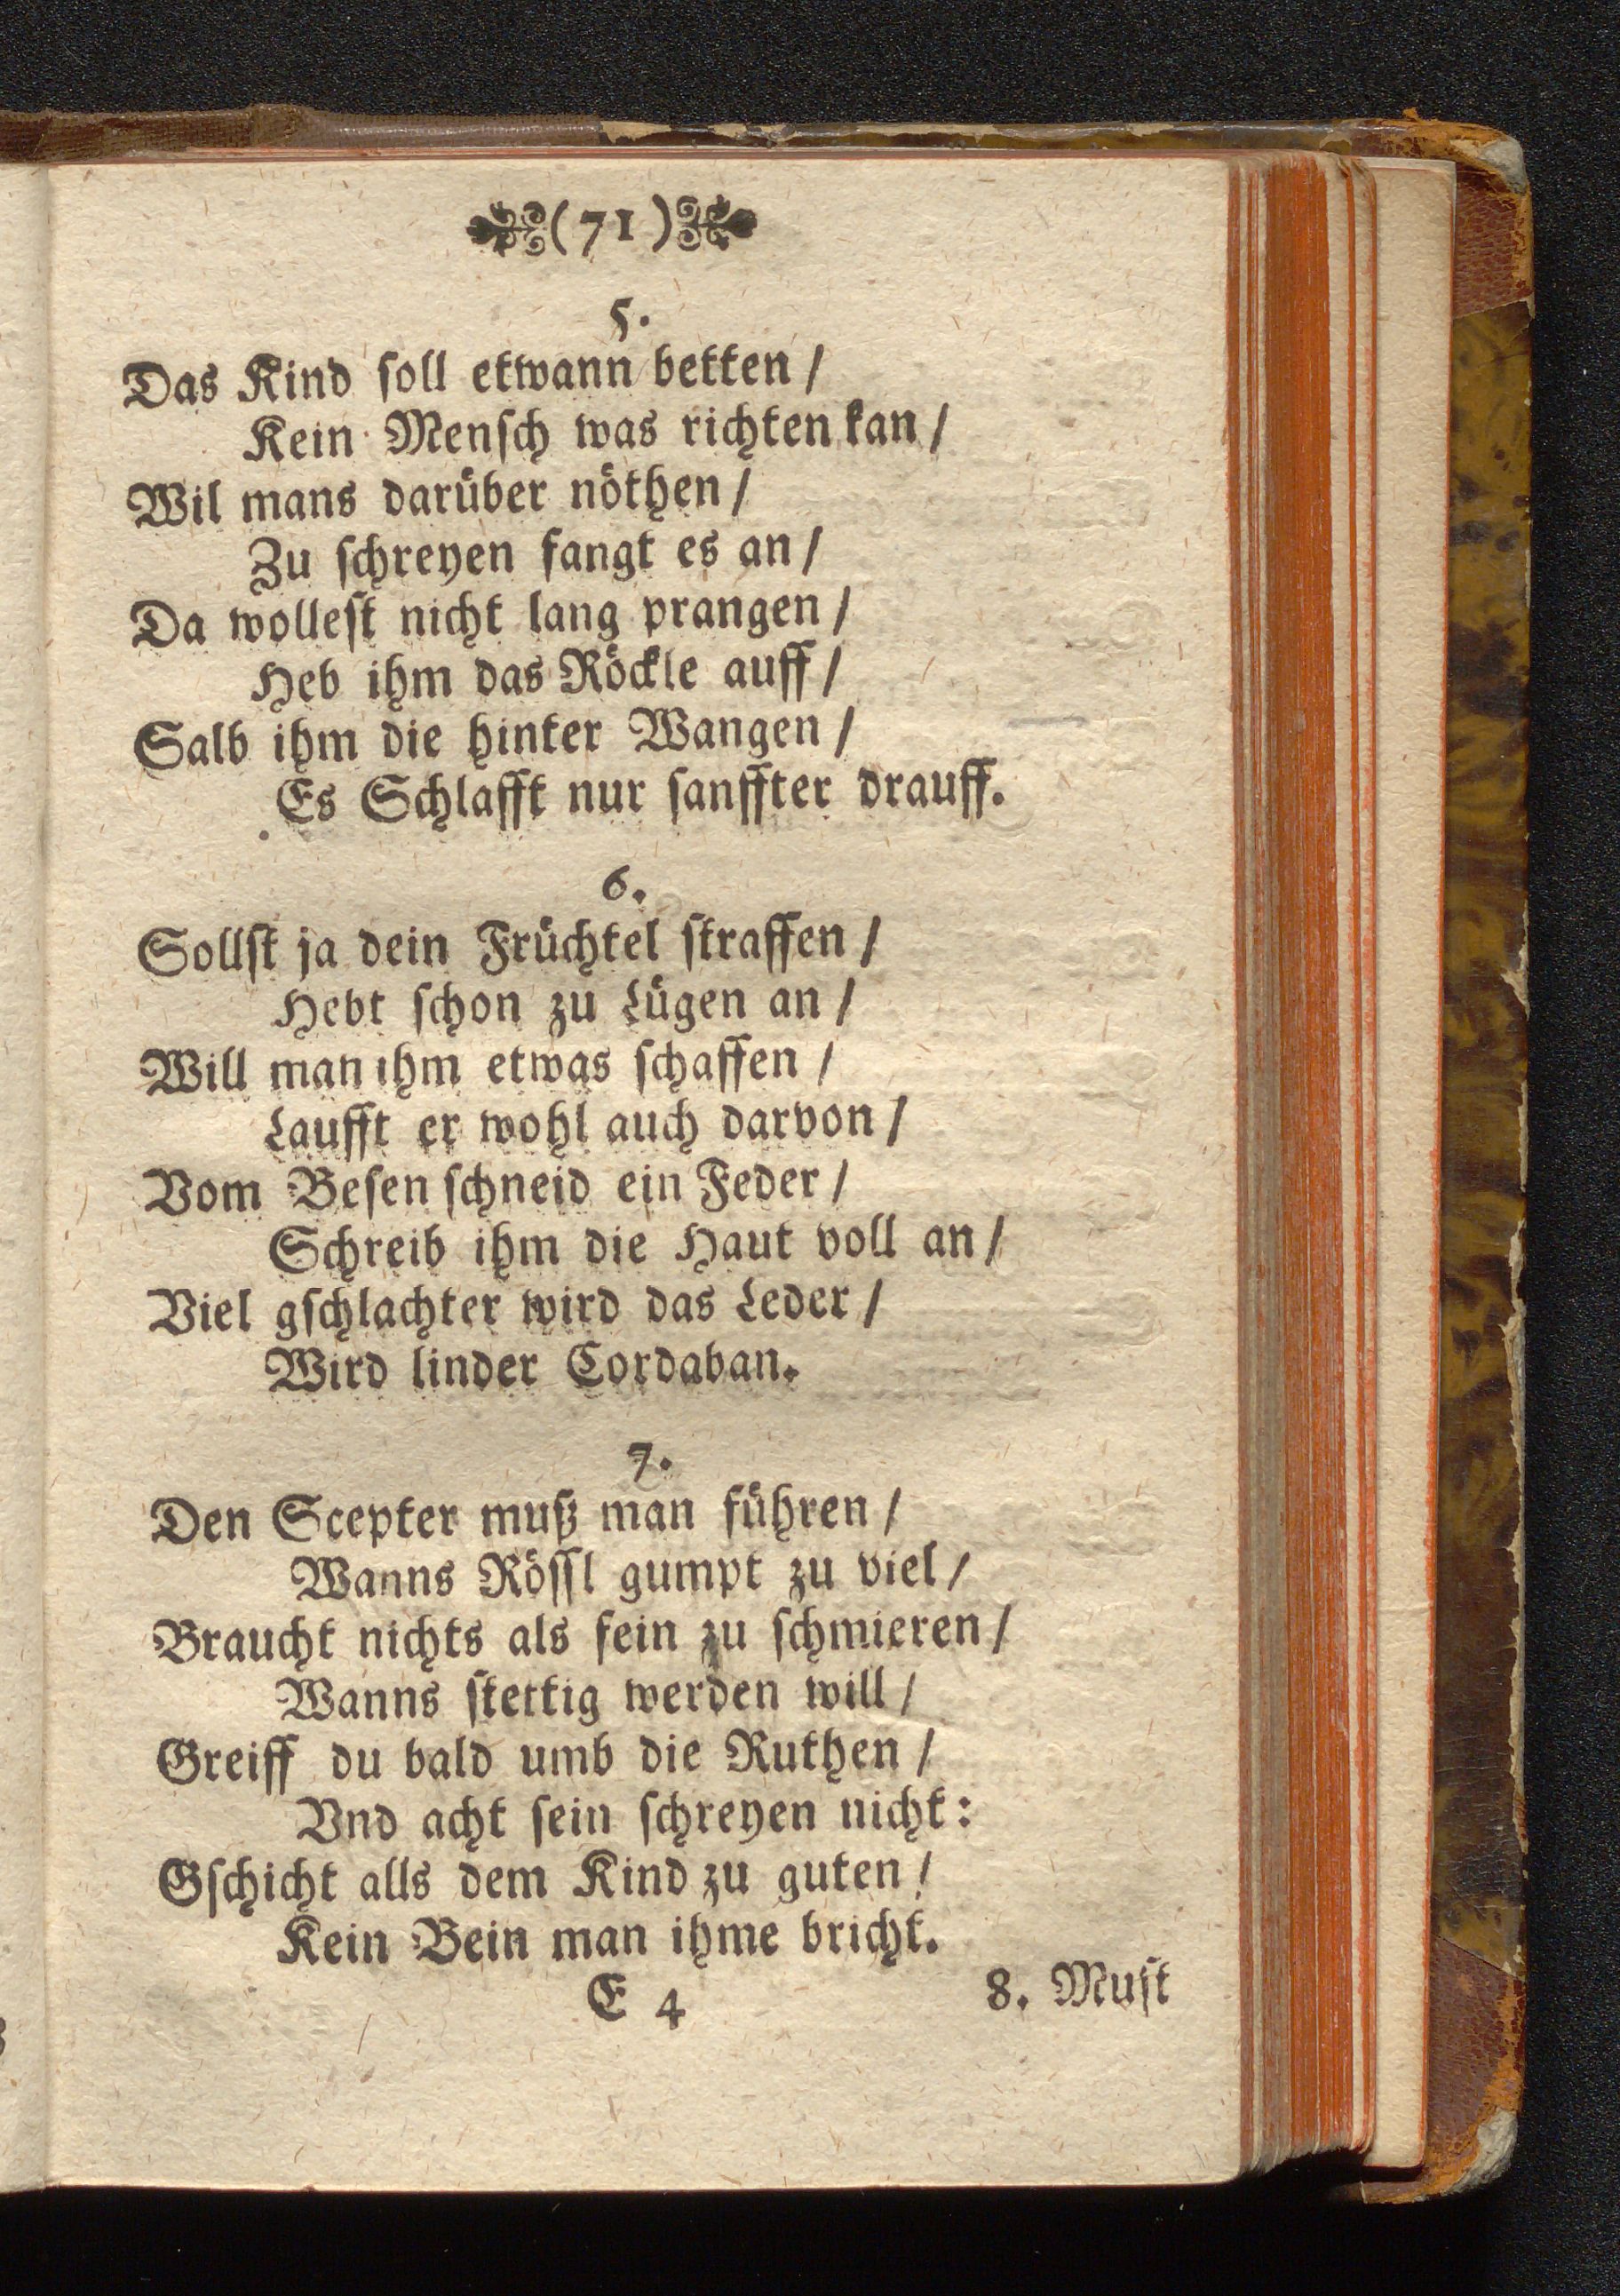 (71)
5.
Das Kind ſoll etwann betten /
Kein Menſch was richten kan /
Wil mans darüber nöthen /
Zu ſchreyen fangt es an /
Da wolleſt nicht lang prangen /
Heb ihm das Röckle auff /
Salb ihm die hinter Wangen /
Es Schlafft nur ſanffter drauff.
6.
Sollſt ja dein Früchtel ſtraffen /
Hebt ſchon zu Lügen an /
Will man ihm etwas ſchaffen /
Laufft er wohl auch darvon /
Vom Beſen ſchneid ein Feder /
Schreib ihm die Haut voll an /
Viel gſchlachter wird das Leder /
Wird linder Cordaban.
7.
Den Scepter muß man führen /
Wanns Röſſl gumpt zu viel /
Braucht nichts als fein zu ſchmieren /
Wanns ſtettig werden will /
Greiff du bald umb die Ruthen /
Vnd acht ſein ſchreyen nicht:
Gſchicht alls dem Kind zu guten /
Kein Bein man ihme bricht.
E 4
8. Muſt